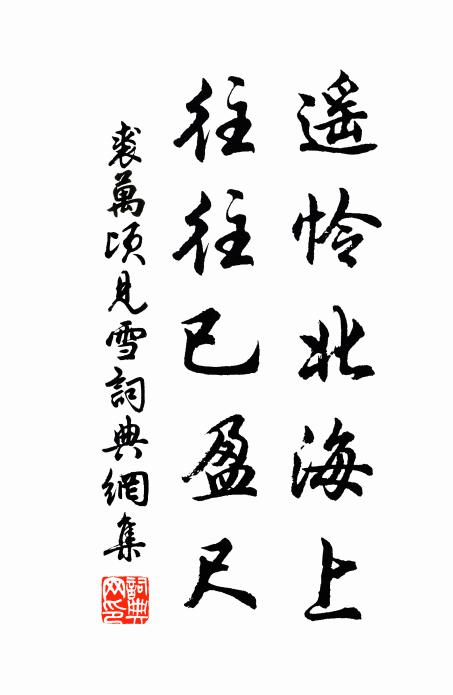 遥怜北海上
往往已盈尺
裘萬頃見雪詞典網集
詞典網印